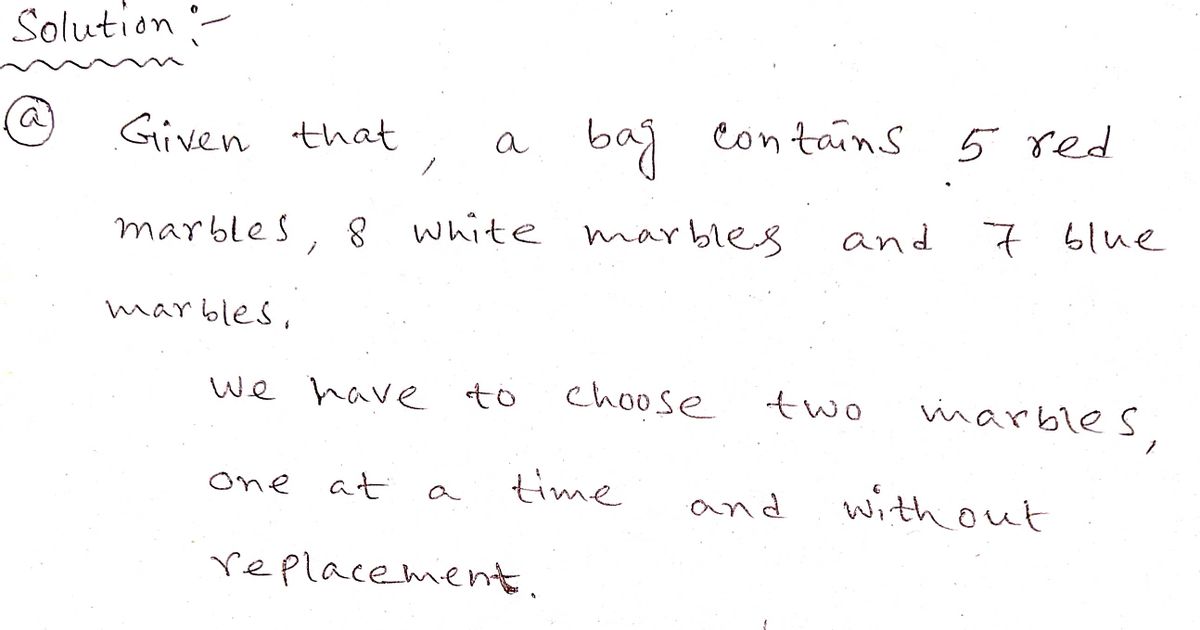 Solution :-
(a) Given that, a bag contains 5 red
marbles, 8 white marbles and 7 blue
marbles.
we have to choose two marbles,
one at a time and without
replacement.